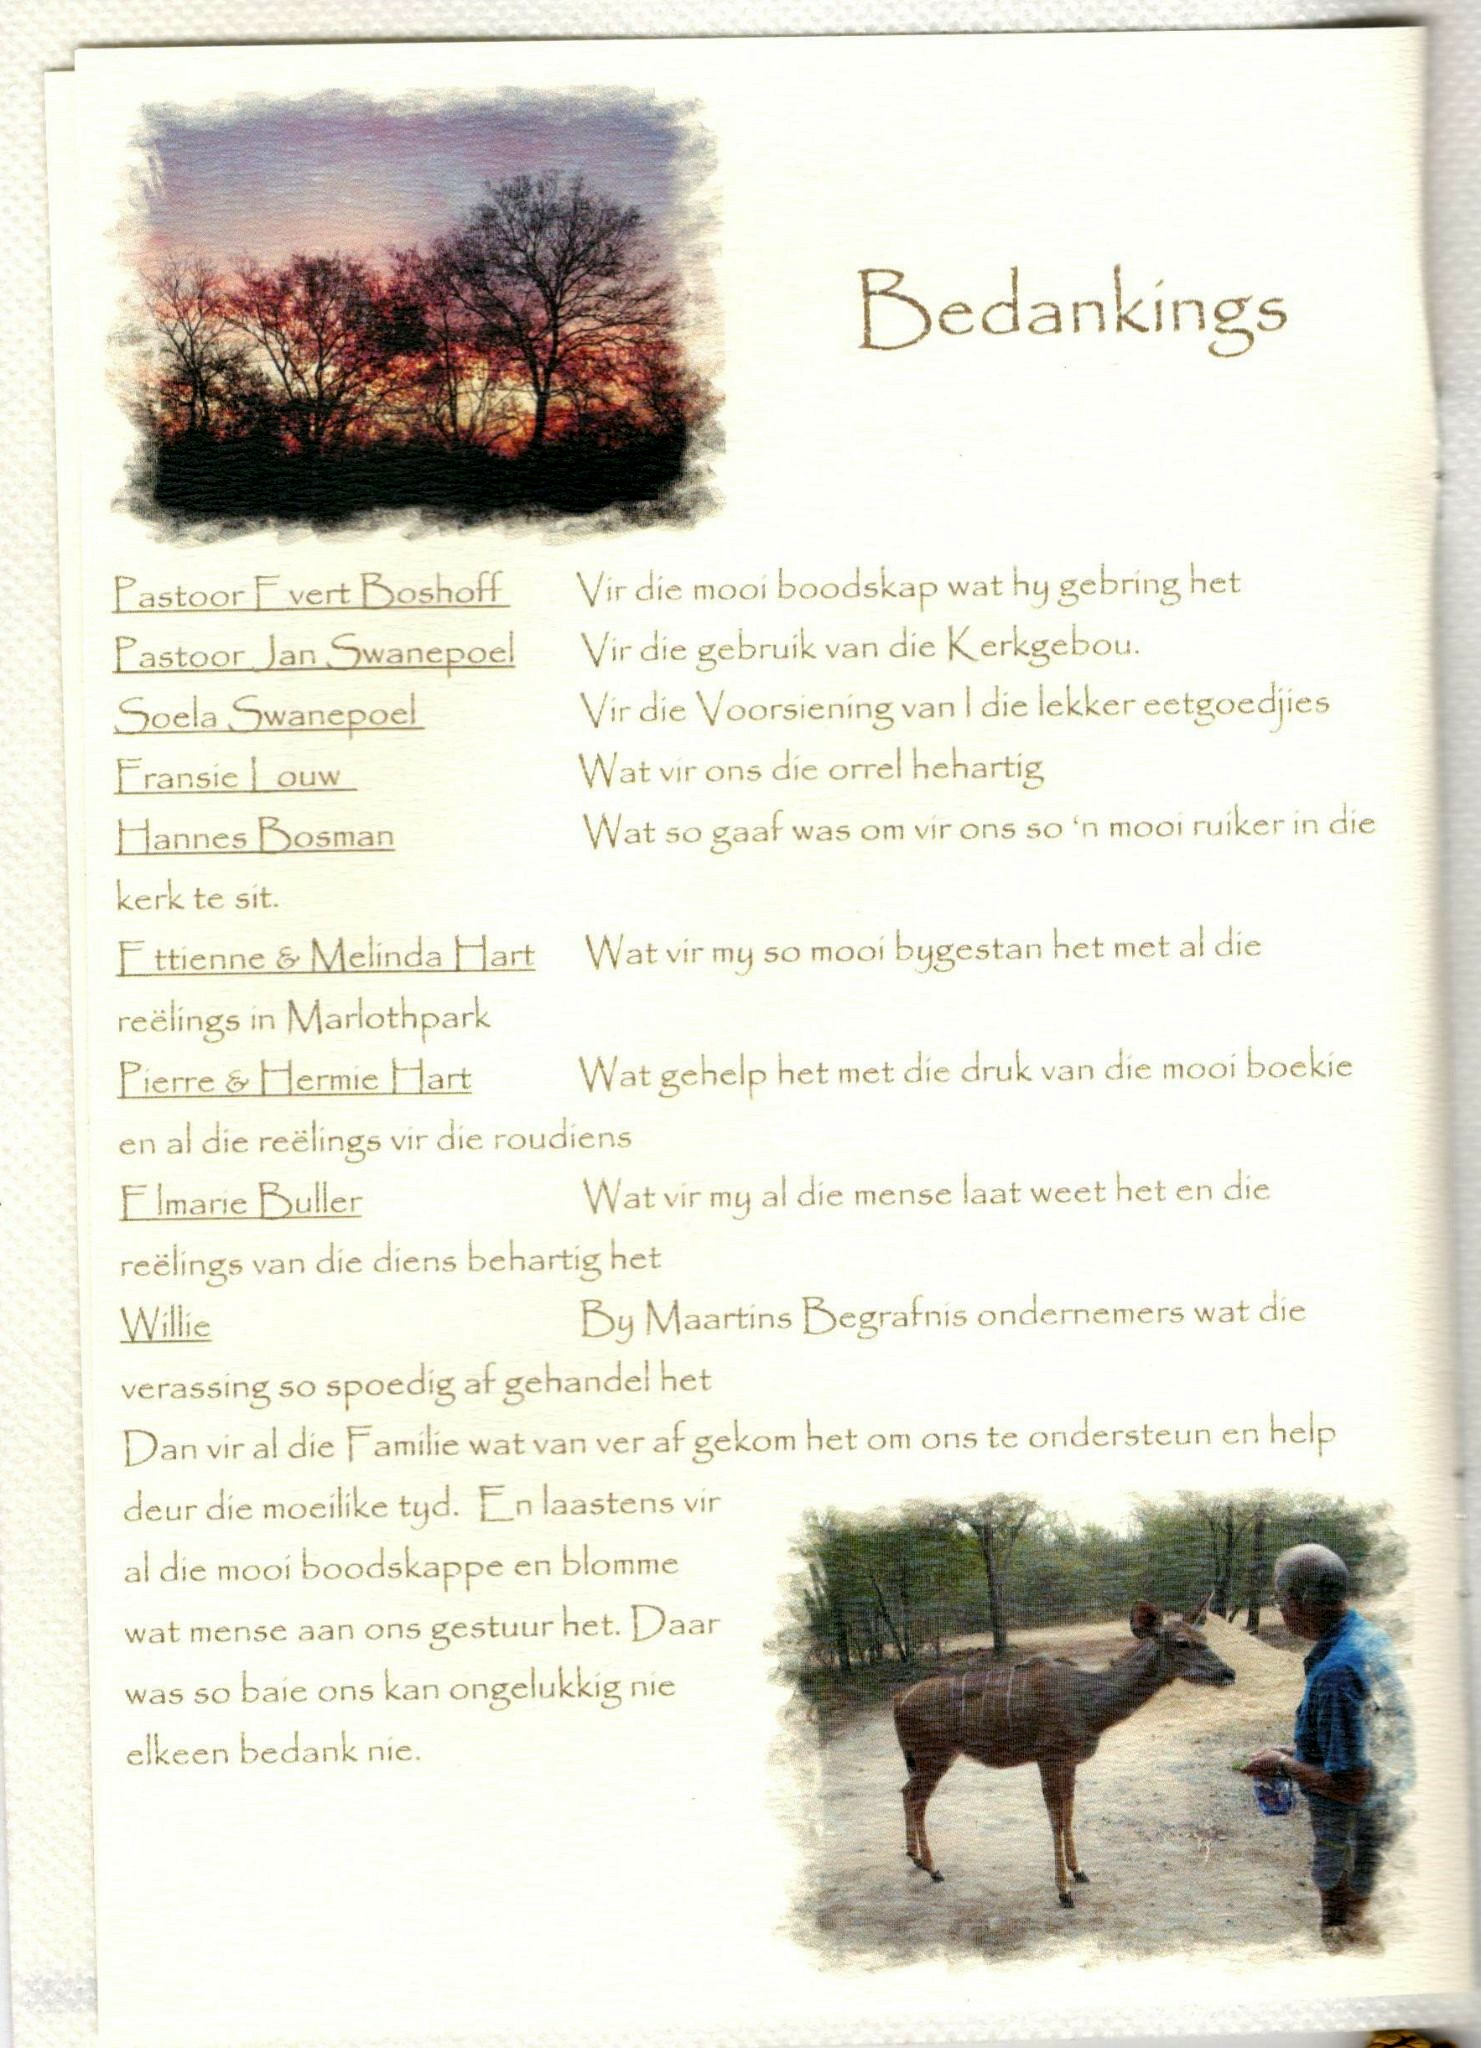 Bedankings
Pastoor Evert Boshoff Vir die mooi boodskap wat hy gebring het
Pastoor Jan Swanepoel Vir die gebruik van die Kerkgebou.
Soela Swanepoel Vir die Voorsiening van l die lekker eetgoedjies
Fransie Louw Wat vir ons die orrel hehartig
Hannes Bosman Wat so gaaf was om vir ons so ‘n mooi ruiker in die
kerk te sit.
Ettienne & Melinda Hart Wat vir my so mooi bygestan het met al die
reëlings in Marlothpark
Pierre & Hermie Hart Wat gehelp het met die druk van die mooi boekie
en al die reëlings vir die roudiens
Elmarie Buller Wat vir my al die mense laat weet het en die
reëlings van die diens behartig het
Willie By Maartins Begrafnis ondernemers wat die
verassing so spoedig af gehandel het
Dan vir al die Familie wat van ver af gekom het om ons te ondersteun en help
deur die moeilike tyd. En laastens vir
al die mooi boodskappe en blomme
wat mense aan ons gestuur het. Daar
was so baie ons kan ongelukkig nie
elkeen bedank nie.